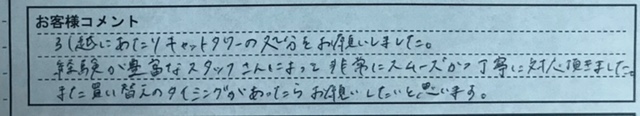 お客様コメント
引越にあたりキャットタワーの処分をお願いしました。
経験が豊富なスタッフさんによって非常にスムーズかつ丁寧に対応頂きました。
また買い替えのタイミングがあったらお願いしたいと思います。